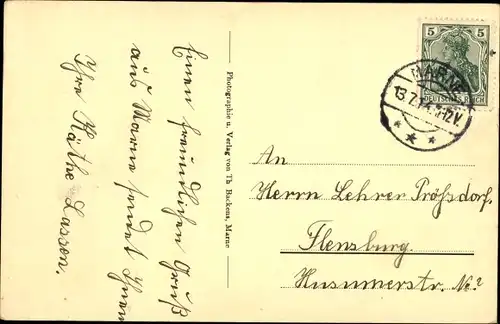 Einen freundlichen Gruß
aus Marne sendet Ihnen
Ihre Käthe Lassen.
Photographie u. Verlag von Th. Backens, Marne
5 5
DEUTSCHES REICH
MARNE
An
Herrn Lehrer Pröhsdorf.
Flensburg.
Husumerstr. No. 2